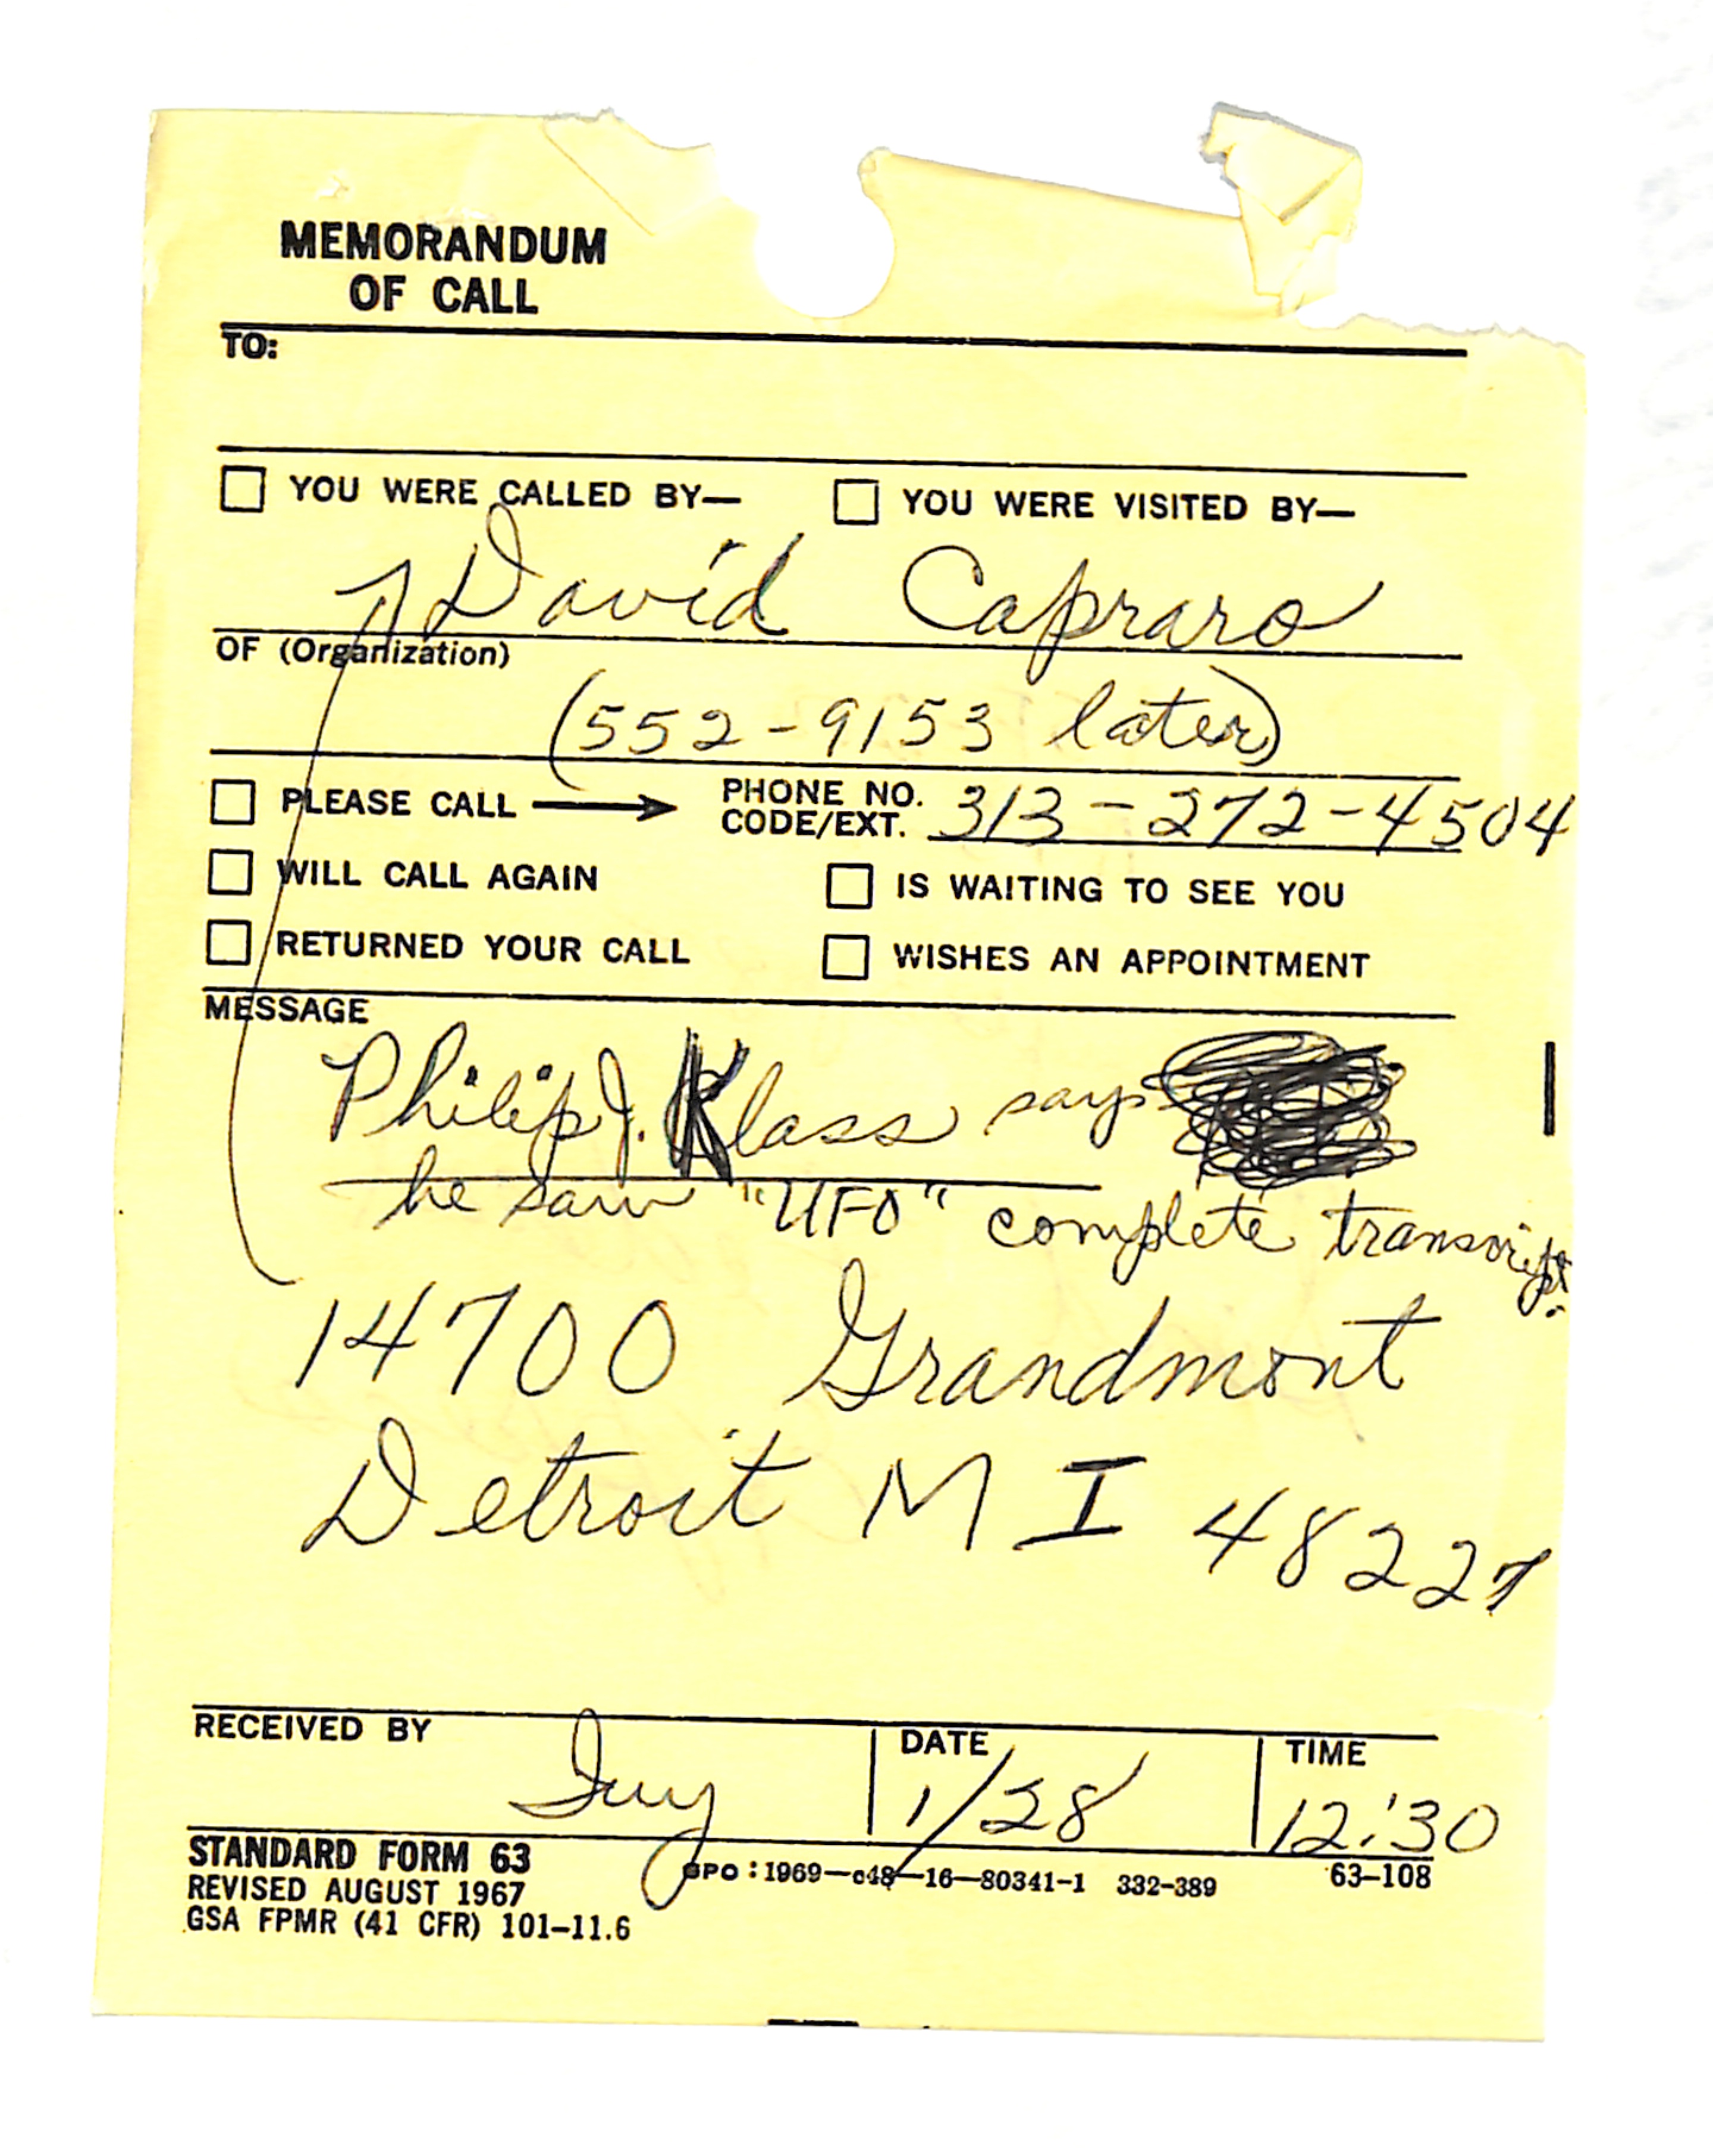 MEMORANDUM
OF CALL
TO:
YOU WERE CALLED BY— YOU WERE VISITED BY—
David Capraro
OF (Organization)
(552-9153 later)
PLEASE CALL → PHONE NO. CODE/EXT. 313-272-4504
WILL CALL AGAIN IS WAITING TO SEE YOU
RETURNED YOUR CALL WISHES AN APPOINTMENT
MESSAGE
Philip J. Klass says
he saw "UFO" complete transcript.
14700 Grandmont
Detroit MI 48227
RECEIVED BY DATE TIME
1/28 12:30
STANDARD FORM 63
REVISED AUGUST 1967
GSA FPMR (41 CFR) 101–11.6
GPO : 1969—c48—16—80341-1 332-389 63–108